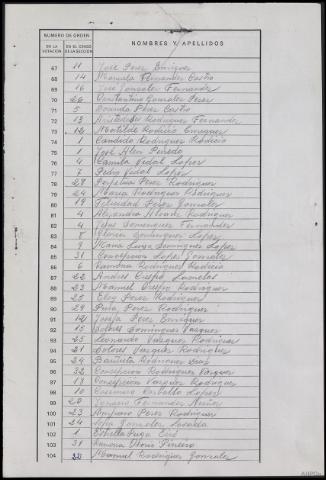 NUMERO DE ORDEN
NOMBRES Y APELLIDOS
DE LA VOTACION
EN EL CENSO DE LA SECCION
67 11 José Perez Enriquez
68 14 Manuela Fernandez Castro
69 16 José Gonzalez Fernandez
70 26 Constantino Gonzalez Perez
71 5 Perez Castro
72 13 Aristides Rodriguez Fernandez
73 12 Matilde Rodicio Enriquez
74 1 Candido Rodriguez Rodicio
75 1 José Aten
76 4 Camila Vidal Lopez
77 7 Pedro Vidal Lopez
78 29 Perpetua Perez Rodriguez
79 24 Maria Rodriguez Rodriguez
80 19 Felicidad Perez Gonzalez
81 4 Alejandra Alvarez Rodriguez
82 4 Jesus Dominguez Fernandez
83 8 Gloria Dominguez Lopez
84 9 Maria Luisa Dominguez Lopez
85 31 Concepcion Lopez Gonzalez
86 6 Ramona Rodriguez Rodicio
87 22 Andres Crespo
88 23 Manuel Crespo Rodriguez
89 25 Eloy Perez Rodriguez
90 29 Pura Perez Rodriguez
91 12 Josefa Perez Enriquez
92 15 Dolores Dominguez Vazquez
93 25 Leonardo Vazquez Rodriguez
94 21 Dolores Vazquez Rodriguez
95 24 Bautista Rodriguez
96 32 Concepcion Rodriguez Vazquez
97 13 Concepcion Vazquez Rodriguez
98 10 Casimiro Carballo Lopez
99 20 Fernandez
100 23 Amparo Perez Rodriguez
101 24 Sofia Gonzalez
102 1 Estrella Puga Cid
103 31 Ramona
104 32 Manuel Rodriguez Gonzalez